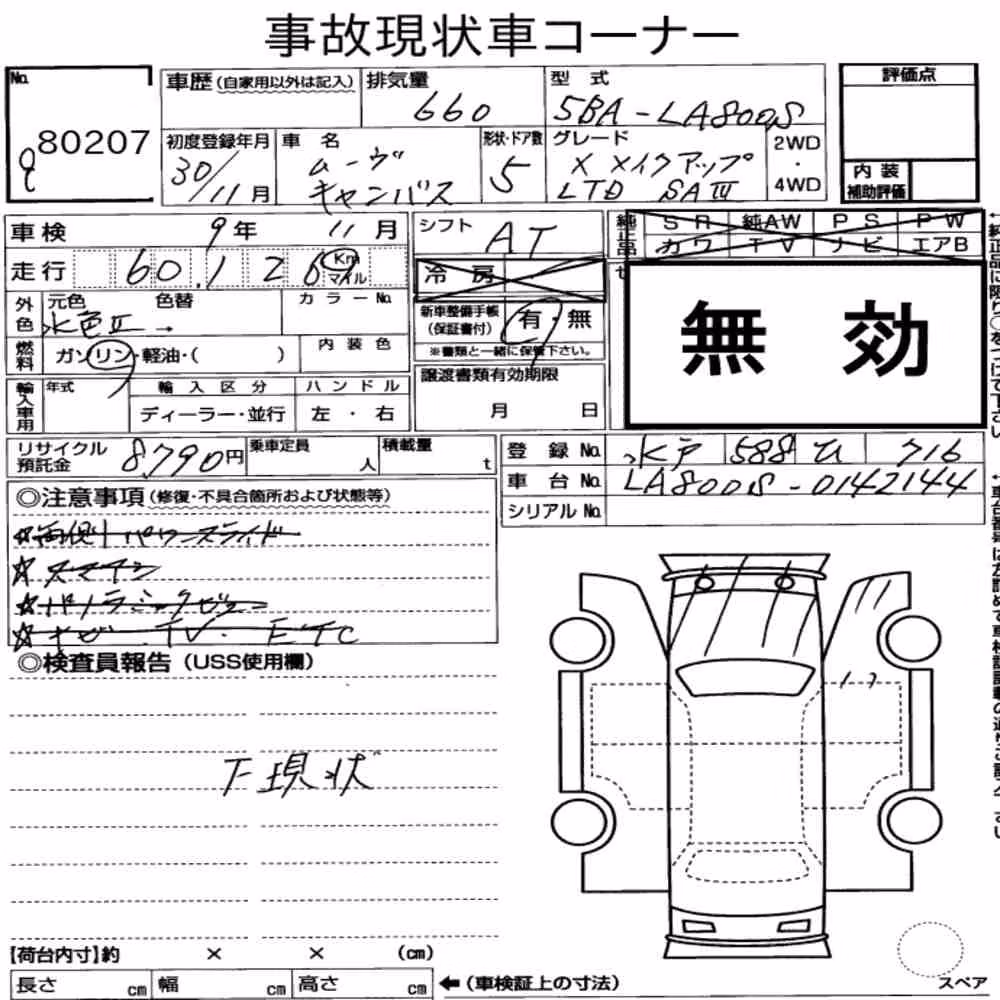 事故現状車コーナー
No.
80207
9
車歴 (自家用以外は記入)
排気量
660
型式
5BA-LA800S
評価点
初度登録年月
30/11月
車名
ムーヴ
キャンバス
形状・ドア数
5
グレード
X メイクアップ
LTD SAⅢ
2WD
・
4WD
内装
補助評価
車検 9年 11月
シフト
AT
純正品
SR 純AW PS PW
カワ TV ナビ エアB
走行 60,126 Km
マイル
冷房
無効
外色
元色 色替
水色Ⅱ→
カラーNo.
新車整備手帳
(保証書付)
有・無
※書類と一緒に保管下さい。
燃料
ガソリン・軽油・( )
内装色
譲渡書類有効期限
月 日
輸入車用
年式
輸入区分
ディーラー・並行
ハンドル
左・右
リサイクル
預託金
8790円
乗車定員
人
積載量
t
登録No. 水戸 588 ひ 716
車台No. LA800S-0142144
シリアルNo.
◎注意事項 (修復・不具合箇所および状態等)
☆両側パワースライド
☆スマアシ
☆パノラミックビュー
☆ナビ・TV・ETC
◎検査員報告 (USS使用欄)
下現状
【荷台内寸】約 × × (cm)
長さ cm 幅 cm 高さ cm
←(車検証上の寸法)
スペア